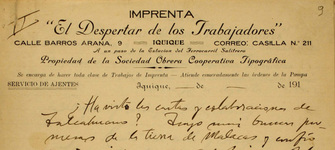 9
IMPRENTA
"El Despertar de los Trabajadores"
CALLE BARROS ARANA, 9 IQUIQUE CORREO: CASILLA N.° 211
A un paso de la Estacion del Ferrocarril Salitrero
Propiedad de la Sociedad Obrera Cooperativa Tipográfica
Se encarga de hacer toda clase de Trabajos de Imprenta - Atiende esmeradamente las órdenes de la Pampa
SERVICIO DE AJENTES Iquique, de de 191
¿Ha visto las cartas y celebraciones de
Talcahuano? Tengo muy buenas
de la tierra de y confío